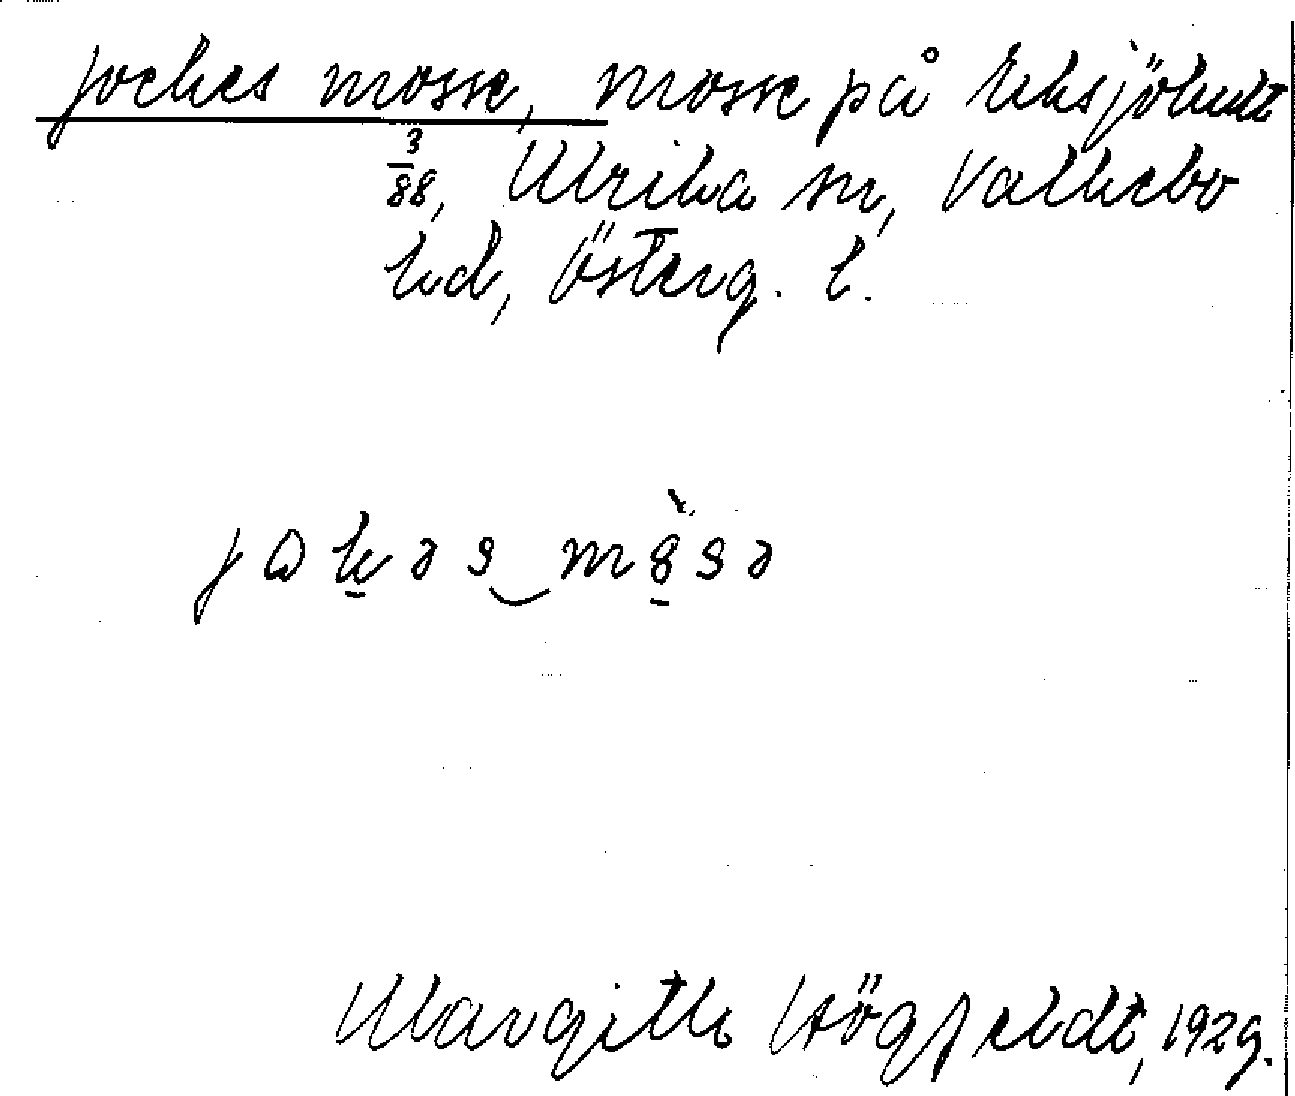 Jockes mosse, mosse på Eksjöhult
3/88, Ulrika sn, Valkebo
hd, Österg. l.
jɷkəs mɞ̀sə
Margith Högfeldt, 1929.